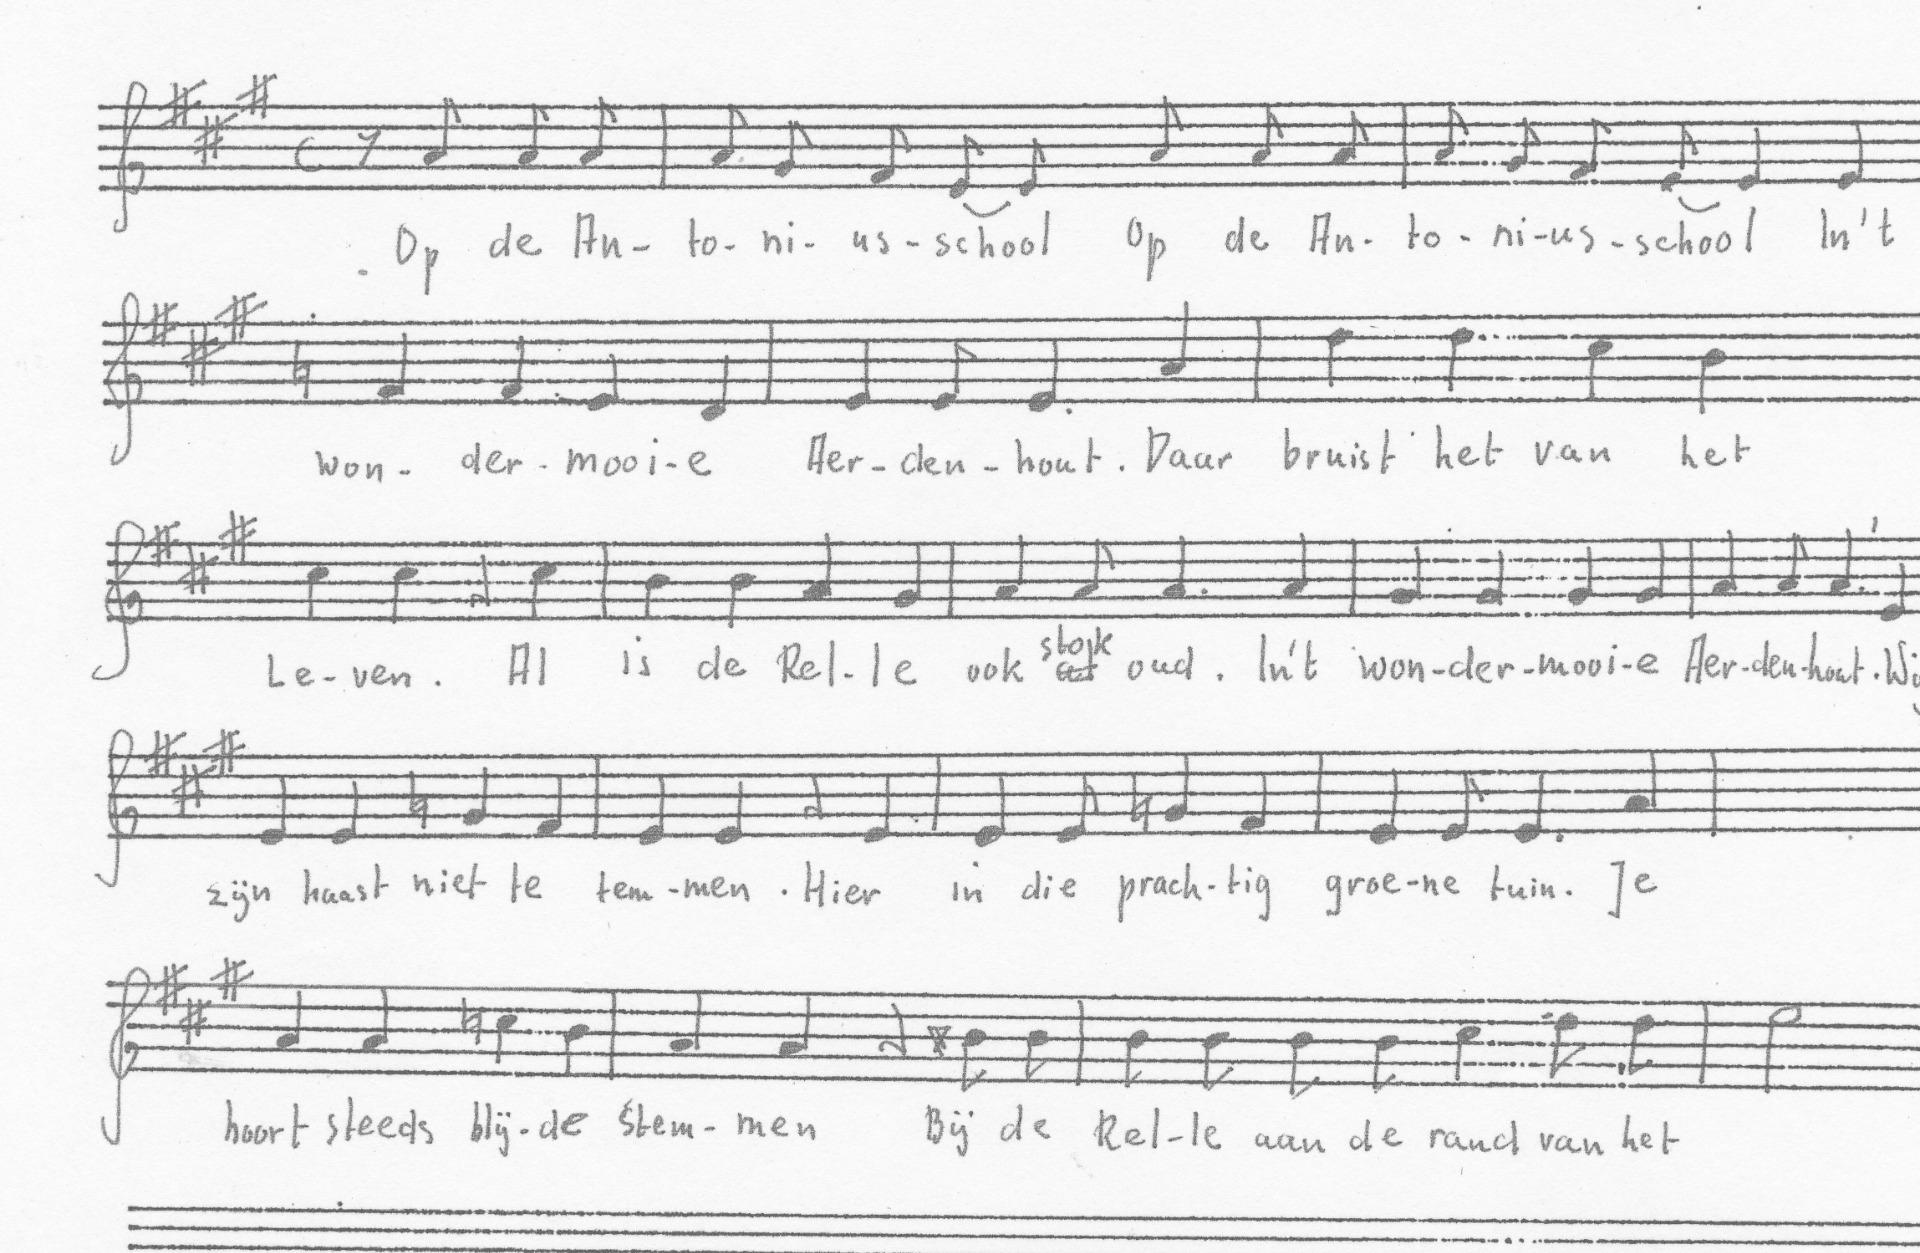 Op de An- to- ni- us-school Op de An- to- ni-us-school In't
won- der-mooi-e Aer-den-hout. Daar bruist het van het
Le-ven. Al is de Rel-le ook stok oud. In't won-der-mooi-e Aer-den-hout.
zijn haast niet te tem-men. Hier in die prach-tig groe-ne tuin. Je
hoort steeds blij-de stem-men Bij de Rel-le aan de rand van het